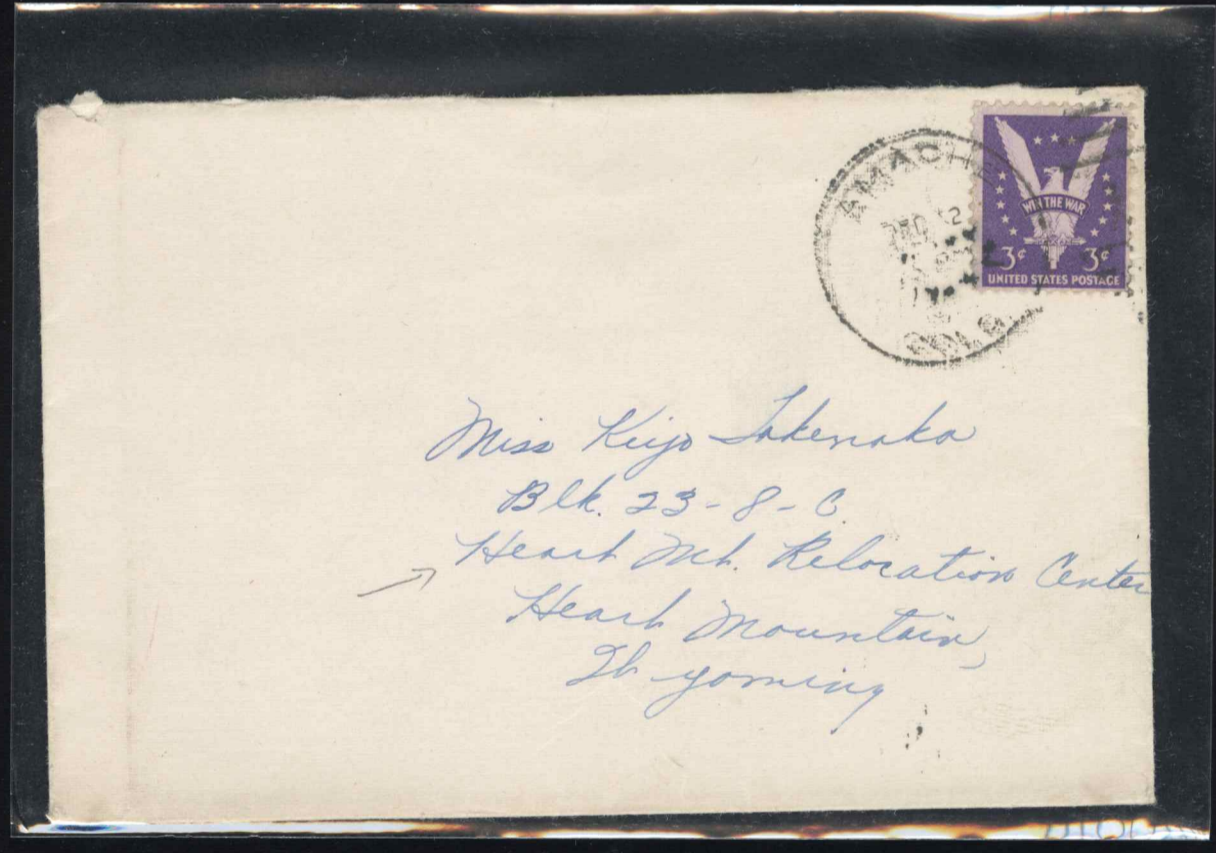 AMACHE
DEC 12
COLO.
WIN THE WAR
3¢ 3¢
UNITED STATES POSTAGE
Miss Kiyo Takenaka
Blk. 23-8-C
Heart Mt. Relocation Center
Heart Mountain,
Wyoming